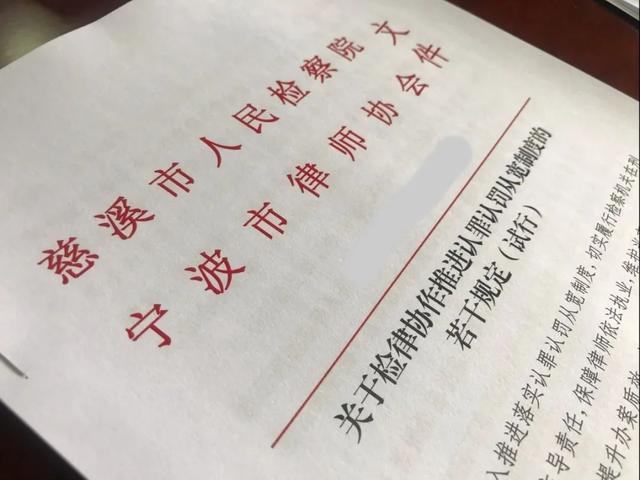 慈溪市人民检察院文
宁波市律师协会件
关于检律协作推进认罪认罚从宽制度的
若干规定（试行）
推进落实认罪认罚从宽制度，切实履行检察机关在刑
导责任，保障律师依法执业，维护
提升办案质效